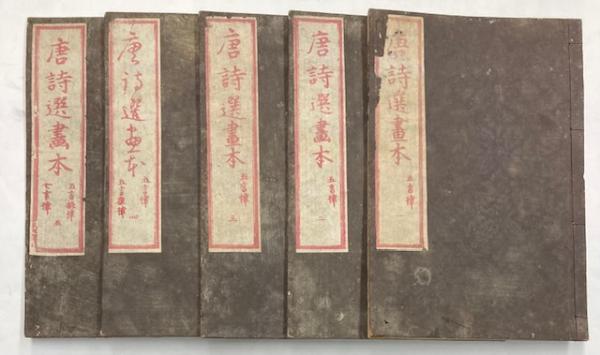 唐詩選畫本
五言律
唐詩選畫本
五言律
二
唐詩選畫本
五言律
三
唐詩選畫本
五言律
五言排律
四
唐詩選畫本
五言排律
七言律
五